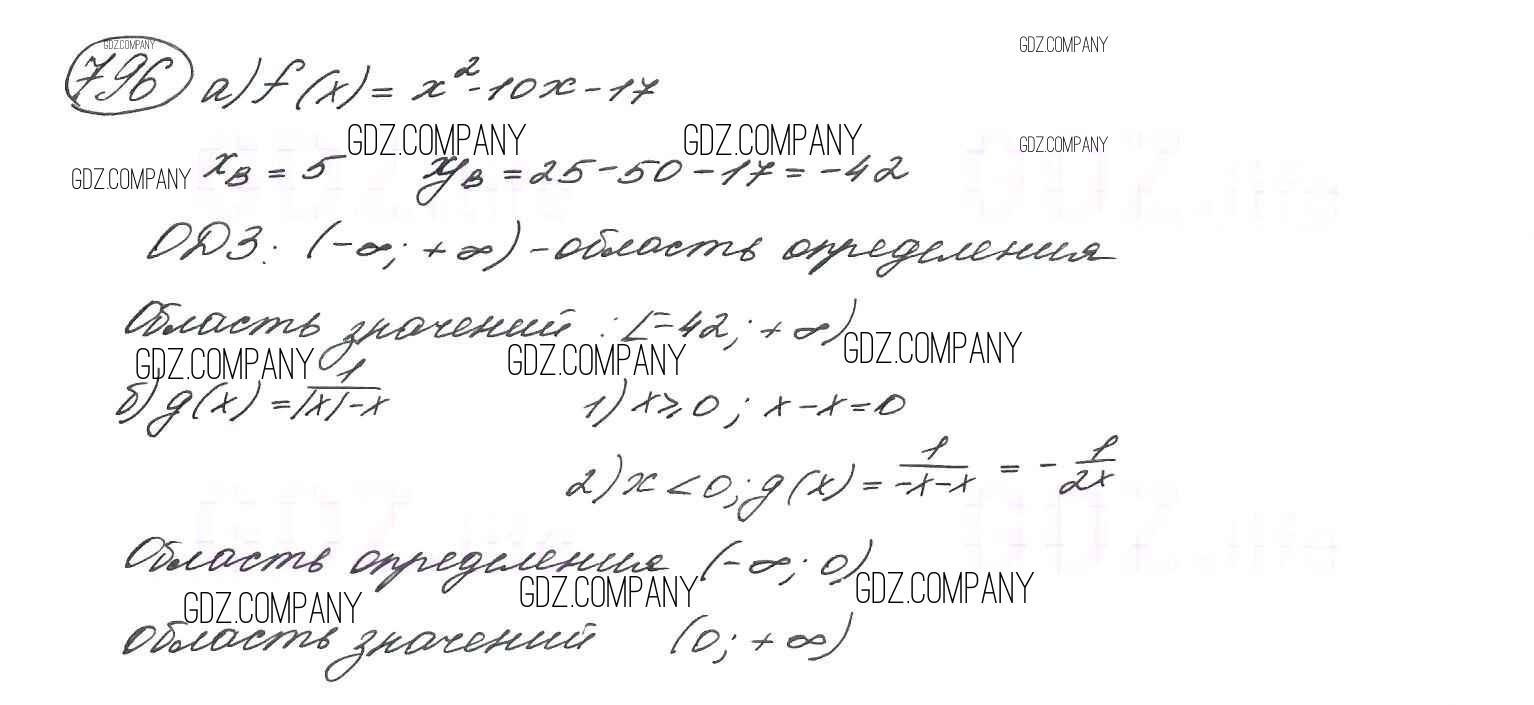 GDZ.COMPANY
GDZ.COMPANY
796 а) f(x) = x² - 10x - 17
GDZ.COMPANY GDZ.COMPANY GDZ.COMPANY
GDZ.COMPANY xв = 5 yв = 25 - 50 - 17 = -42
ОДЗ: (-∞; +∞) - область определения
Область значений : [-42; +∞)
GDZ.COMPANY GDZ.COMPANY GDZ.COMPANY
б) g(x) = 1/(|x|-x) 1) x ⩾ 0; x - x = 0
2) x < 0; g(x) = 1/(-x-x) = - 1/(2x)
Область определения (-∞; 0)
GDZ.COMPANY GDZ.COMPANY GDZ.COMPANY
область значений (0; +∞)